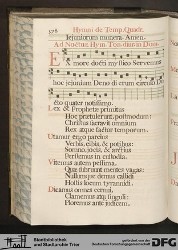 128
Hymni de Temp. Quadr.
Iejuniorum munera. Amen.
Ad Nocturn. Hym. Toni dium in Domi.
Ex more docti mystico Servemus
hoc jejunium Deno dierum circulo Du-
cto quater notissimo.
Lex & Prophetæ primitus
Hoc prætulerunt, postmodum:
Christus sacravit omnium
Rex atque factor temporum.
Utamur ergo parcius
Verbis, cibis, & potibus:
Somno, jocis, & arctius
Perstemus in custodia.
Vitemus autem pessima,
Quæ subruunt mentes vagas:
Nullumque demus callidi
Hostis locum tyrannidi.
Dicamus omnes cernui,
Clamemus atq. singuli:
Ploremus ante judicem,
Stadtbibliothek
und Stadtarchiv Trier
gefördert von der
Deutschen Forschungsgemeinschaft
DFG